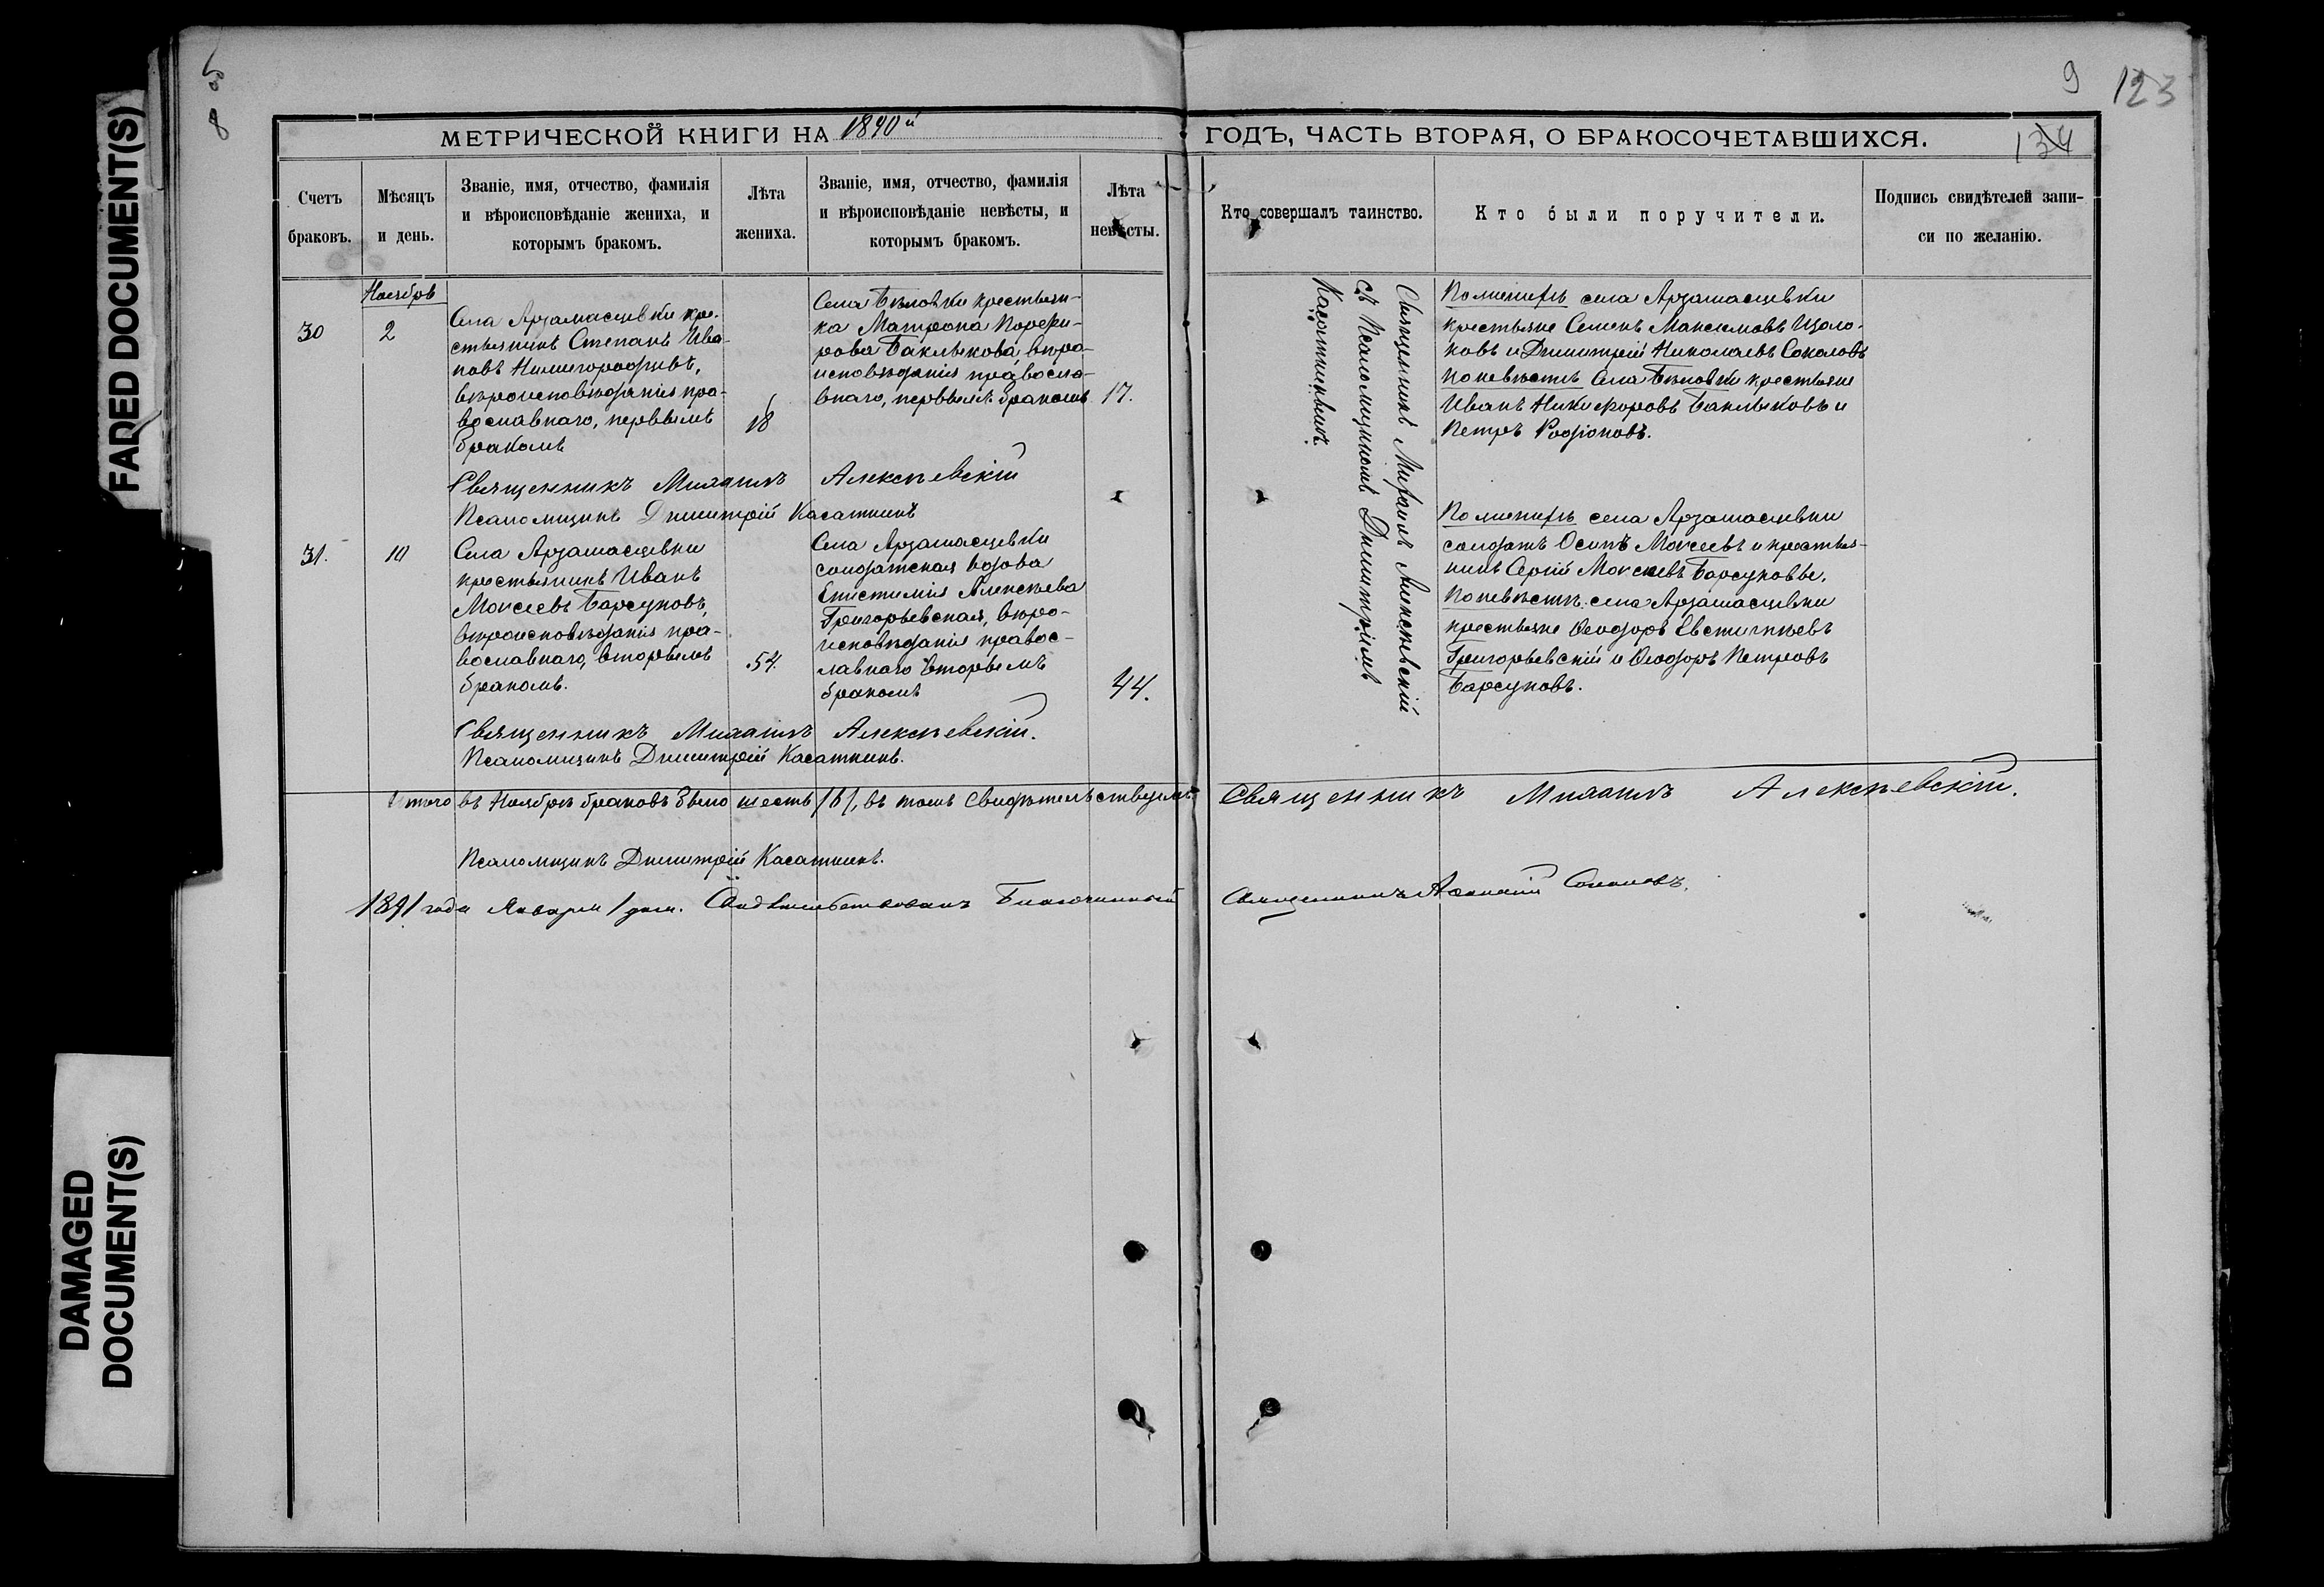 FADED DOCUMENT(S)
DAMAGED
DOCUMENT(S)
9 123
134
МЕТРИЧЕСКОЙ КНИГИ НА 1890й
ГОДЪ, ЧАСТЬ ВТОРАЯ, О БРАКОСОЧЕТАВШИХСЯ.
Счетъ
браковъ.
Мѣсяцъ
и день.
Званіе, имя, отчество, фамилія
и вѣроисповѣданіе жениха, и
которымъ бракомъ.
Лѣта
жениха.
Званіе, имя, отчество, фамилія
и вѣроисповѣданіе невѣсты, и
которымъ бракомъ.
Лѣта
невѣсты.
Кто совершалъ таинство.
Кто были поручители.
Подпись свидѣтелей запи-
си по желанію.
30
Ноябрь
2
Села Арзамасцевки кре-
стьянинъ Степанъ Ива-
новъ Нижегородцевъ,
вѣроисповѣданія пра-
вославнаго, первымъ
бракомъ
18
Села Бѣловки крестьян-
ка Матрона Порфи-
рова Баклыкова, вѣро-
исповѣданія правосла-
внаго, первымъ бракомъ
17.
Священникъ Михаилъ Алексѣевскій
съ Псаломщикомъ Димитріемъ
Касаткинымъ.
По женихѣ села Арзамасцевки
крестьяне Семенъ Максимовъ
ковъ и Димитрій Николаевъ Соколовъ
по невѣстѣ села Бѣловки крестьяне
Иванъ Никифоровъ Баклыковъ и
Петръ Родіоновъ.
Священникъ Михаилъ Алексѣевскій
Псаломщикъ Димитрій Касаткинъ
31.
10
Села Арзамасцевки
крестьянинъ Иванъ
Моисеевъ Барсуковъ,
вѣроисповѣданія пра-
вославнаго, вторымъ
бракомъ.
54.
Села Арзамасцевки
солдатская вдова
Епистимія Алексѣева
Григорьевская, вѣро-
исповѣданія правос-
лавнаго вторымъ
бракомъ
44.
По женихѣ села Арзамасцевки
солдатъ Осипъ Моисеевъ и крестья-
нинъ Сергій Моисеевъ Барсуковы.
По невѣстѣ села Арзамасцевки
крестьяне Ѳеодоръ Евстигнѣевъ
Григорьевскій и Ѳеодоръ Петровъ
Барсуковъ.
Священникъ Михаилъ Алексѣевскій.
Псаломщикъ Димитрій Касаткинъ.
Итого въ Ноябрѣ браковъ было шесть /6/, въ томъ свидѣтельствуемъ Священникъ Михаилъ Алексѣевскій.
Псаломщикъ Димитрій Касаткинъ.
1891 года Января 1 дня. Свидѣтельствовалъ Благочинный Священникъ